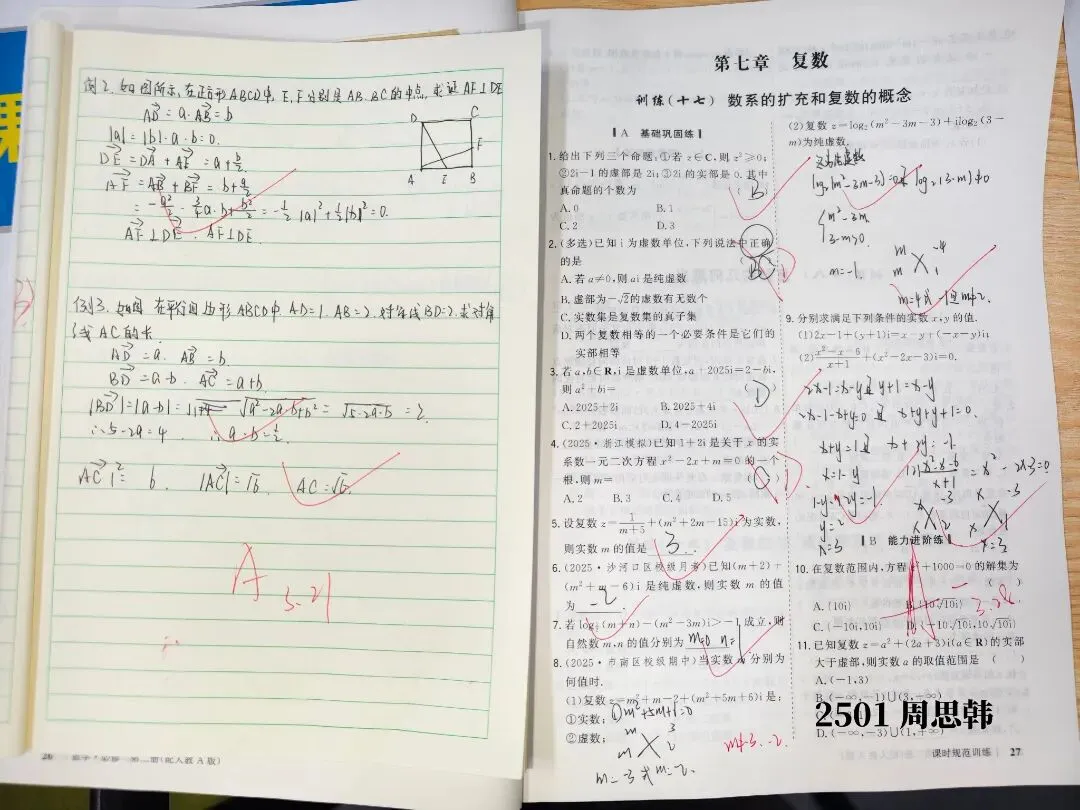 例2. 如图所示,在正方形ABCD中,E,F分别是AB,BC的中点,求证AF⊥DE
AD=a. AB=b
|a|=|b|. a·b=0.
DE=DA+AE=a+b/2
AF=AB+BF=b+a/2
=-a²/2-3/4a·b+b²/2=-1/2|a|²+1/2|b|²=0.
AF⊥DE. AF⊥DE.
D
C
F
A
E
B
例3. 如图 在平行四边形ABCD中. AD=1. AB=2. 对角线BD=2. 求对角
线AC的长.
AD=a. AB=b.
BD=a-b. AC=a+b.
|BD|=|a-b|=√a²-2a·b+b²=√5-2a·b=2.
∴5-2a=4. ∴a·b=1/2.
|AC|²=6. |AC|=√6. AC=√6.
A
3.21
第七章 复数
训练(十七) 数系的扩充和复数的概念
A 基础巩固练
1.给出下列三个命题:①若z∈C,则z²≥0;
②2i-1的虚部是2i;③2i的实部是0.其中
真命题的个数为 ( B )
A.0 B.1
C.2 D.3
2.(多选)已知i为虚数单位,下列说法中正确
的是
A.若a≠0,则ai是纯虚数
B.虚部为-√2的虚数有无数个
C.实数集是复数集的真子集
D.两个复数相等的一个必要条件是它们的
实部相等
3.若a,b∈R,i是虚数单位,a+2025i=2-bi,
则a²+bi= ( D )
A.2025+2i B.2025+4i
C.2+2025i D.4-2025i
4.(2025·浙江模拟)已知1+2i是关于x的实
系数一元二次方程x²-2x+m=0的一个
根,则m=
A.2 B.3 C.4 D.5
5.设复数z=1/(m+5)+(m²+2m-15)i为实数,
则实数m的值是 3 .
6.(2025·沙河口区校级月考)已知(m+2)+
(m²+m-6)i是纯虚数,则实数m的值
为 -2 .
7.若log½(m+n)-(m²-3m)i>-1成立,则
自然数m,n的值分别为 m=0 n=1
8.(2025·市南区校级期中)当实数m分别为
何值时.
(1)复数z=m²+m-2+(m²+5m+6)i是:
①实数; ①m²+5m+6=0
②虚数; m 3
m 2
m=-3或m=-2.
m≠-3,-2.
(2)复数z=log₂(m²-3m-3)+ilog₂(3-
m)为纯虚数.
log₂(m²-3m-3)=0且log₂(3-m)≠0
m²-3m
3-m>0.
m=-1.
m -4
m 1
m=4或-1且m≠2.
9.分别求满足下列条件的实数x,y的值.
(1)2x-1+(y+1)i=x-y+(-x-y)i;
(2)(x²-x-6)/(x+1)+(x²-2x-3)i=0.
2x-1=x-y且y+1=x-y
2x-1-x+y=0且x+y+y+1=0.
x+y=1且x+2y=-1.
x=1-y
1-y+2y=-1.
y=2
x=3
(2)(x²-x-6)/(x+1)=x²-2x-3=0
x -3
x 2
x -3
x 1
x=3
B 能力进阶练
10.在复数范围内,方程z²+1000=0的解集为
( )
A.{10i} B.{10√10i}
C.{-10i,10i} D.{-10√10i,10√10i}
A-
3.24
11.已知复数z=a²+(2a+3)i(a∈R)的实部
大于虚部,则实数a的取值范围是 ( )
A.(-1,3)
B.(-∞,-1)∪(3,+∞)
D.(-∞,-3)∪(1,+∞)
2501 周思韩
课时规范训练 27